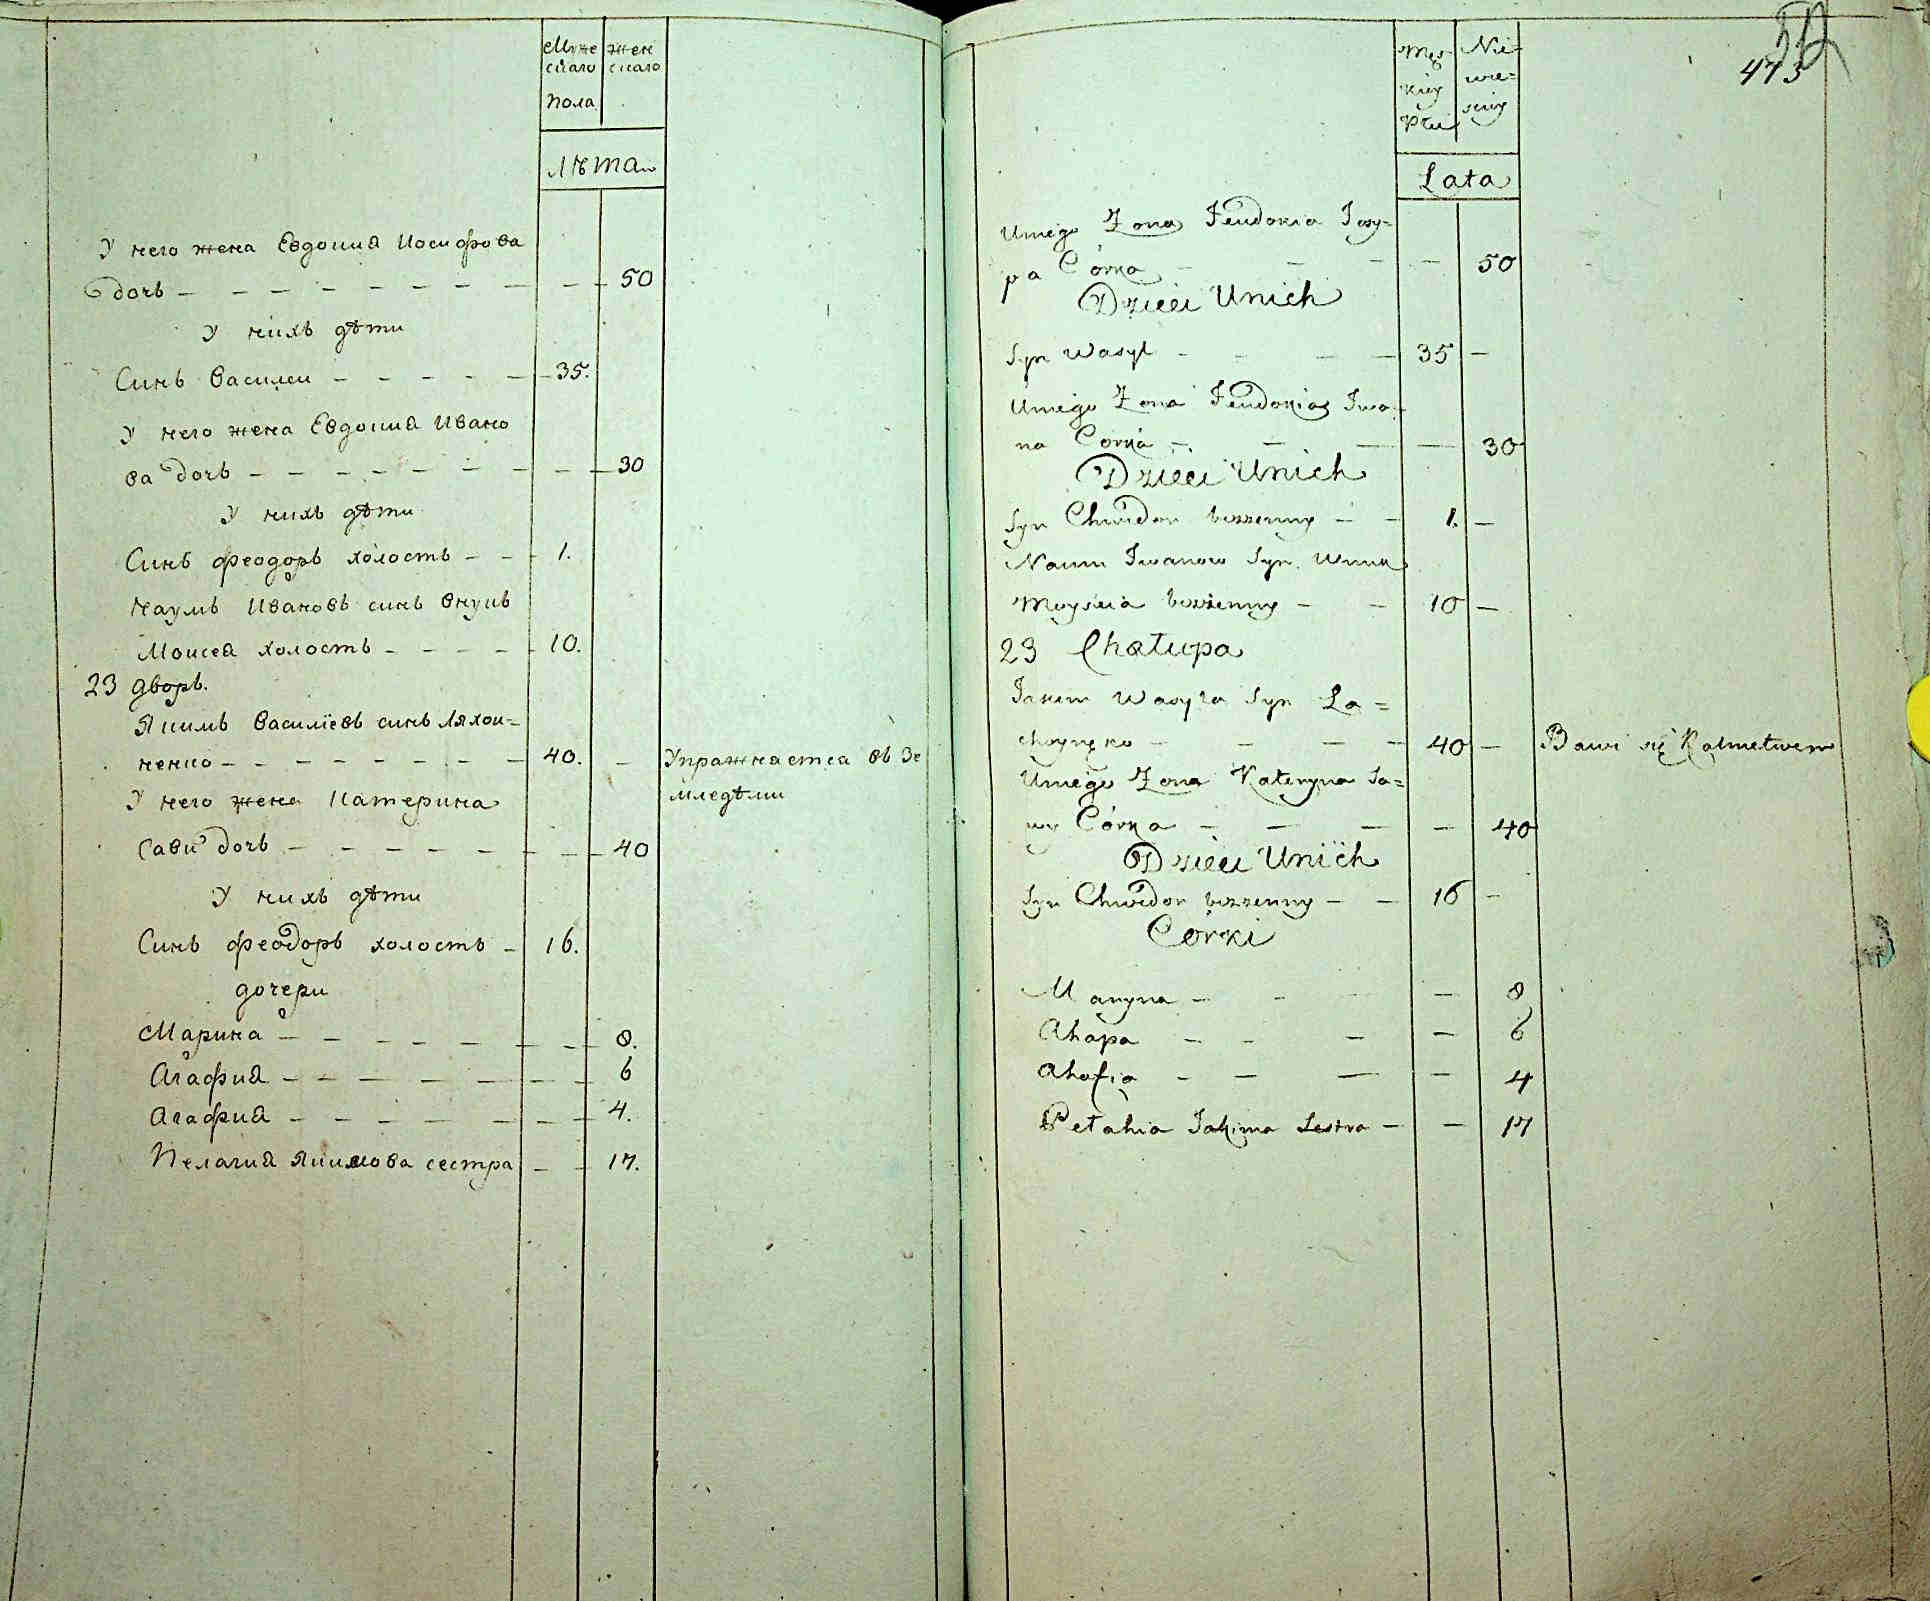 Муже жен
скаго скаго
пола
Лѣта
У него жена Евдокия Иосифова
дочь — — — — — — — — 50
У нихъ дѣти
Синъ Василеи — — — — — 35.
У него жена Евдокия Ивано
ва дочь — — — — — — — — 30
У нихъ дѣти
Синъ феодоръ холостъ — — — 1.
Наумъ Ивановъ синъ внукъ
Моисея холостъ — — — — 10.
23 дворъ.
Якимъ Василіевъ синъ Ляхои=
ненко — — — — — — — 40. — Упражнается въ Зе
У него жена Катерина мледѣлии
Сави дочь — — — — — — — 40
У нихъ дѣти
Синъ феодоръ холостъ — 16.
дочери
Марина — — — — — — — 8.
Агафия — — — — — — — 6
Агафия — — — — — — — 4.
Пелагия Якимова сестра — — 17.
473
52
Męz Nie
kiey wie=
Płci sciey
Lata
Umego Zona Feudokia Josy=
pa Córka — — — — 50
Dzieci Unich
Syn Wasyl — — — — 35 —
Umego Zona Feudokia Iwa
na Córka — — — — 30
Dzieci Unich
Syn Chwedor bezzenny — — 1. —
Naum Iwanow Syn Wnuk
Moysieia bezzenny — — 10 —
23 Chałupa
Jakim Wasyla Syn La=
choynęko — — — — 40 — Bawi się Rolnictwem
Umego Zona Kateryna Sa=
wy Córka — — — — 40
Dzieci Unich
Syn Chwedor bezzenny — — 16 —
Córki
Maryna — — — 8
Ahapa — — — — 6
Ahafia — — — — 4
Pełahia Jakima Sestra — — 17